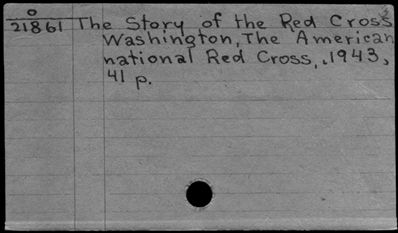 o
21861 The Story of the Red Cross
Washington, The American
national Red Cross, 1943,
41 p.